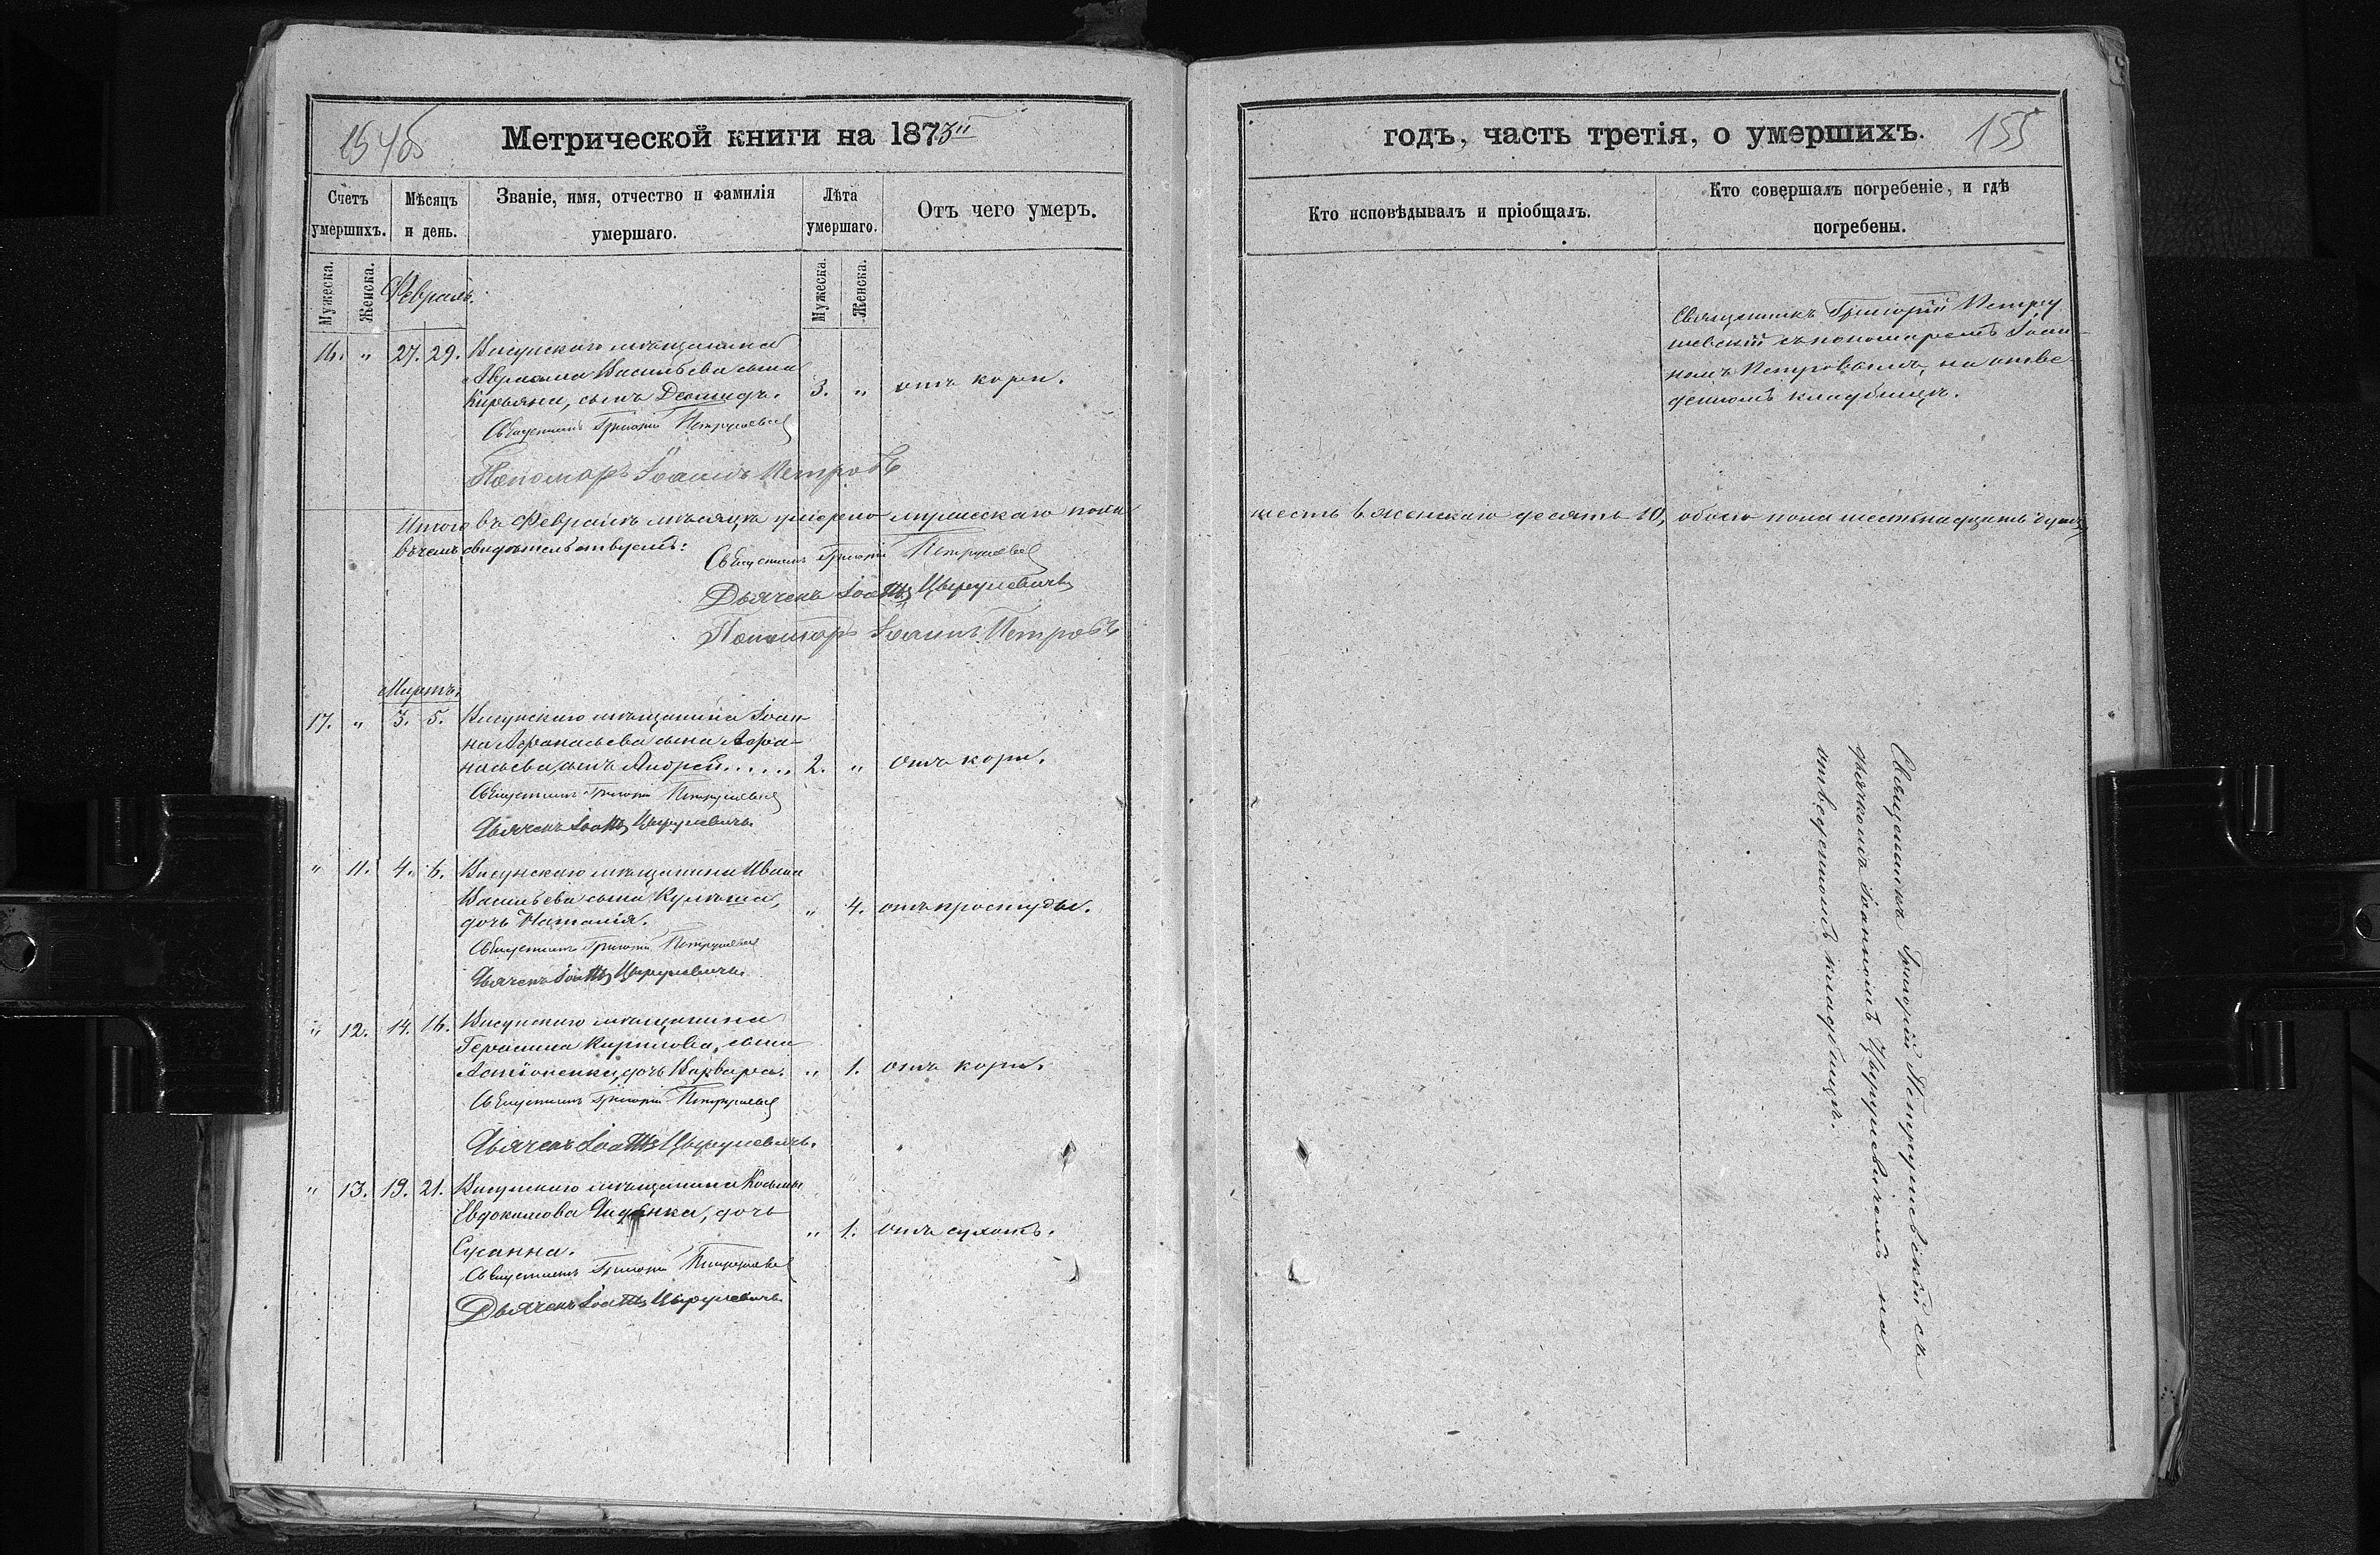 154об
Метрической книги на 1873й
Счетъ умершихъ.
Мѣсяцъ и день.
Званіе, имя, отчество и фамилія умершаго.
Лѣта умершаго.
Отъ чего умеръ.
Мужеска.
Женска.
Февраль.
Мужеска.
Женска.
16. " 27. 29. Висунскаго мѣщанина
Авраама Васильева сына
Кирьяна, сынъ Леонидъ. 3. " отъ кори.
Священникъ Григорій Петрушевскій
Пономарь Іоаннъ Петровъ
Итого въ Февралѣ мѣсяцѣ умерло мужескаго пола
въ чемъ свидѣтельствуемъ:
Священникъ Григорій Петрушевскій
Дьячекъ Іоаннъ Цырулевичъ
Пономарь Іоаннъ Петровъ
Мартъ.
17. " 3. 5. Висунскаго мѣщанина Іоан-
на Афанасьева сына Афа-
насьева, сынъ Андрей..... 2. " отъ кори.
Священникъ Григорій Петрушевскій
Дьячекъ Іоаннъ Цырулевичъ
" 11. 4. 6. Висунскаго мѣщанина Ивана
Васильева сына Кулѣша,
дочь Наталія. " 4. отъ простуды.
Священникъ Григорій Петрушевскій
Дьячекъ Іоаннъ Цырулевичъ
" 12. 14. 16. Висунскаго мѣщанина
Герасима Кирилова, сына
Антоненка, дочь Варвара. " 1. отъ кори.
Священникъ Григорій Петрушевскій
Дьячекъ Іоаннъ Цырулевичъ.
" 13. 19. 21. Висунскаго мѣщанина Косьмы
Евдокимова дочь
Сусанна. " 1. отъ сухотъ.
Священникъ Григорій Петрушевскій
Дьячекъ Іоаннъ Цырулевичъ
годъ, часть третія, о умершихъ.
155
Кто исповѣдывалъ и пріобщалъ.
Кто совершалъ погребеніе, и гдѣ
погребены.
Священникъ Григорій Петру
шевскій съ пономаремъ Іоан-
номъ Петровымъ, на отве-
денномъ кладбищѣ.
шесть 6 женскаго десять 10, обоего пола шестьнадцать душъ
Священникъ Григорій Петрушевскій съ
дьячкомъ Іоанномъ Цырулевичемъ на
отведенномъ кладбищѣ.